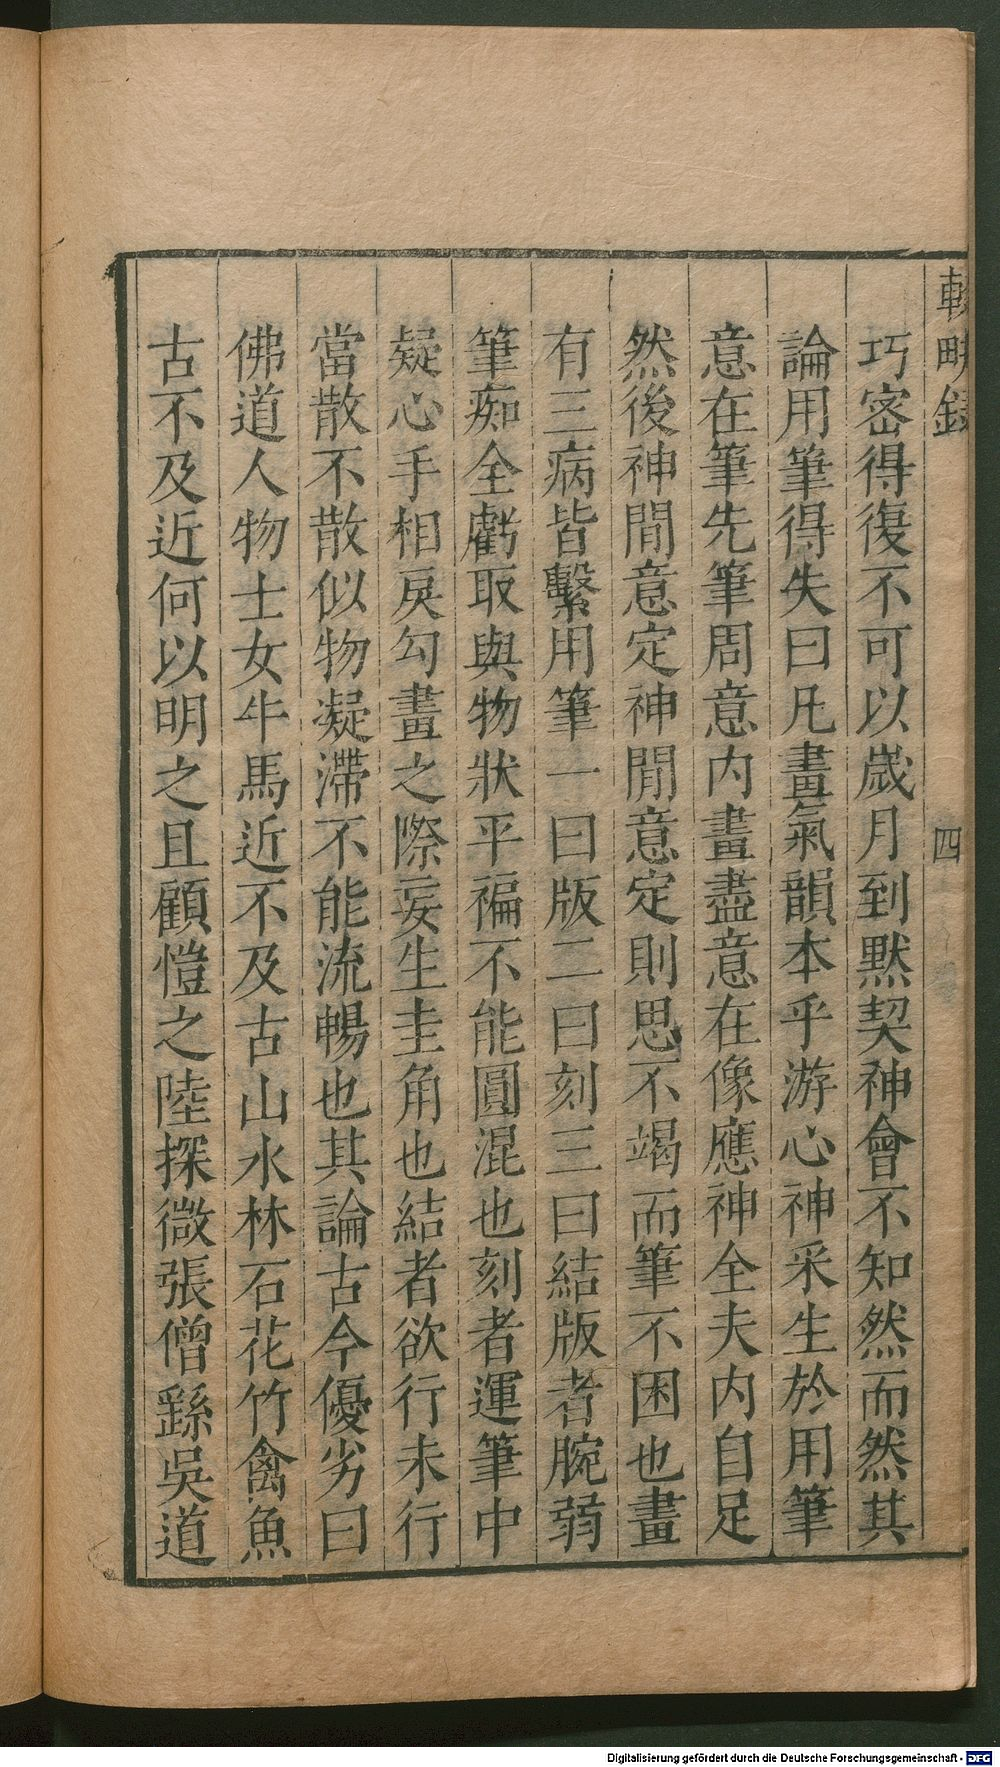 輟畊錄
四
巧密得復不可以歲月到默契神會不知然而然其
論用筆得失曰凡畫氣韻本乎游心神采生於用筆
意在筆先筆周意内畫盡意在像應神全夫内自足
然後神閒意定神閒意定則思不竭而筆不困也畫
有三病皆繫用筆一曰版二曰刻三曰結版者腕弱
筆痴全虧取與物狀平褊不能圓混也刻者運筆中
疑心手相戾勾畫之際妄生圭角也結者欲行未行
當散不散似物凝滯不能流暢也其論古今優劣曰
佛道人物士女牛馬近不及古山水林石花竹禽魚
古不及近何以明之且顧愷之陸探微張僧繇吳道
Digitalisierung gefördert durch die Deutsche Forschungsgemeinschaft - DFG